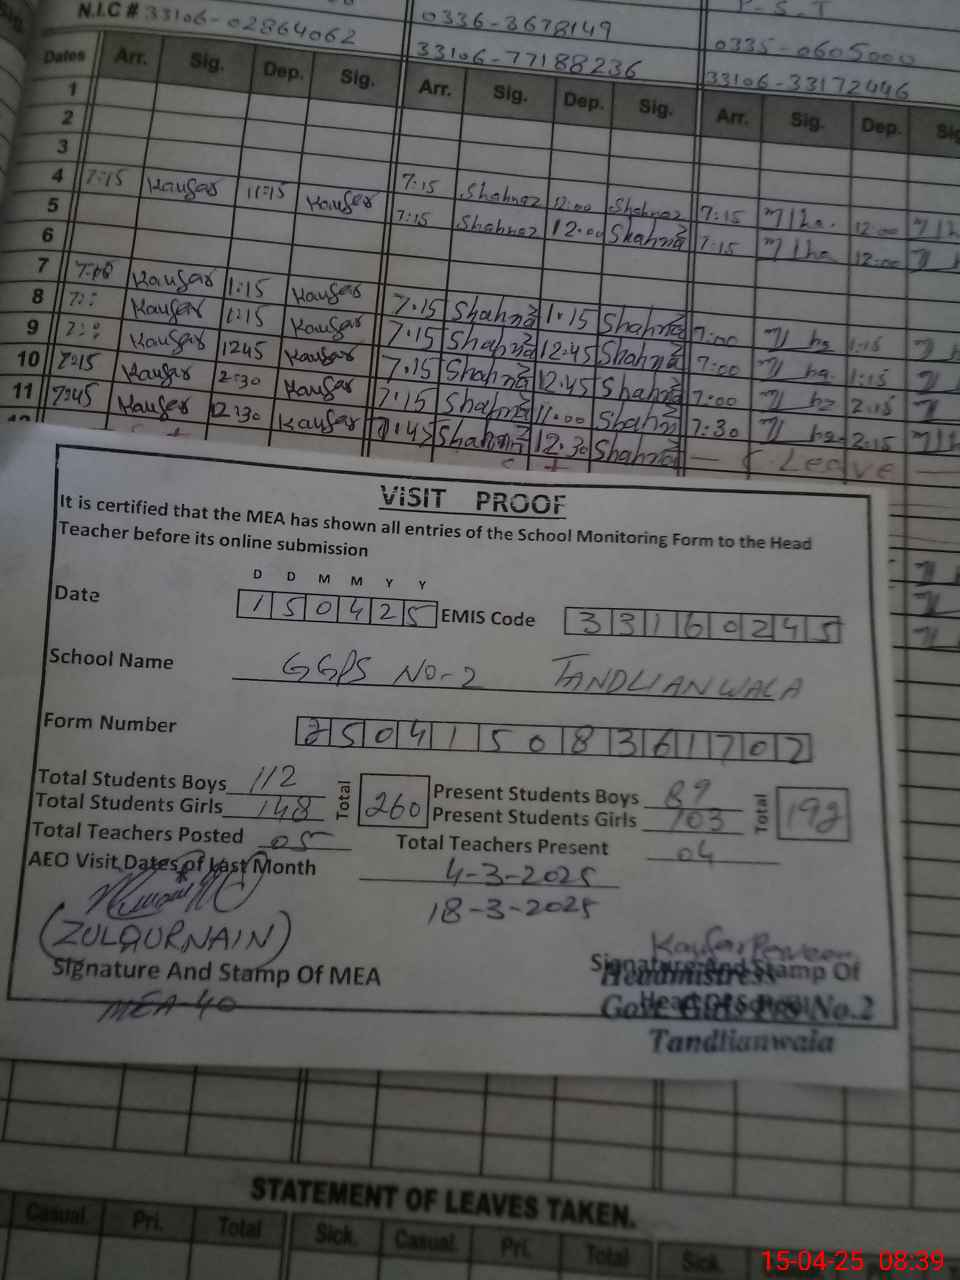 N.I.C # 33106-02864062
0336-3678149
33106-77188236
P.S.T
0335-0605000
33106-33172446
Dates Arr. Sig. Dep. Sig. Arr. Sig. Dep. Sig. Arr. Sig. Dep. Sig
1
2
3
4 7:15 Kausar 11:15 Kausar 7:15 Shahnaz 12:00 Shahnaz 7:15 12:00
5 7:15 Shahnaz 12:00 Shahnaz 7:15 12:00
6
7 Kausar 1:15 Kausar 7:15 Shahnaz 1:15 Shahnaz 7:00 1:15
8 Kausar 1:15 Kausar 7:15 Shahnaz 12:45 Shahnaz 7:00 1:15
9 Kausar 1245 Kausar 7:15 Shahnaz 12:45 Shahnaz 7:00 2:15
10 7:15 Kausar 2:30 Kausar 7:15 Shahnaz 11:00 Shahnaz 7:30 2:15
11 7:45 Kausar 12:30 Kausar 7:45 Shahnaz 12:30 Shahnaz — Leave —
VISIT PROOF
It is certified that the MEA has shown all entries of the School Monitoring Form to the Head
Teacher before its online submission
D D M M Y Y
Date 150425 EMIS Code 33160245
School Name GGPS NO-2 TANDLIANWALA
Form Number 25041508361702
Total Students Boys 112 Total 260 Present Students Boys 89 Total 192
Total Students Girls 148 Present Students Girls 103
Total Teachers Posted 05 Total Teachers Present 04
AEO Visit Dates of Last Month 4-3-2025
18-3-2025
(ZULQURNAIN) Kausar Parveen
Signature And Stamp Of MEA Signature And Stamp Of
Headmistress
Head Of School
MEA-40 Govt. Girls P/S No.2
Tandlianwala
STATEMENT OF LEAVES TAKEN.
Casual. Pri. Total Sick. Casual. Pri. Total Sick.
15-04-25 08:39